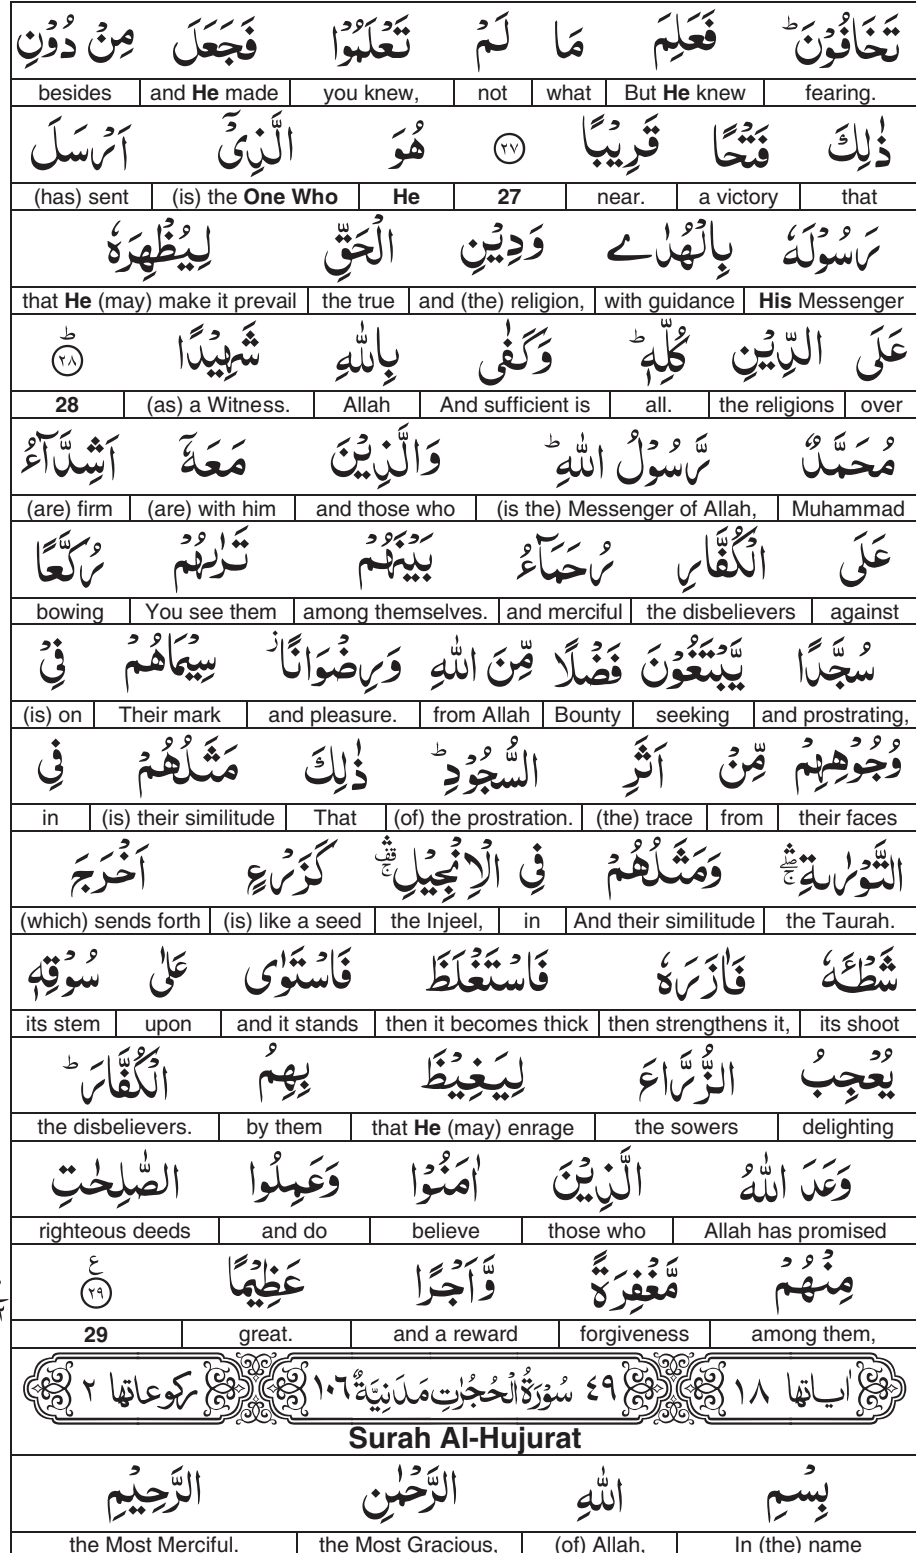 تَخَافُوْنَ ؕ فَعَلِمَ مَا لَمْ تَعْلَمُوْا فَجَعَلَ مِنْ دُوْنِ
fearing. | But He knew | what | not | you knew, | and He made | besides
ذٰلِكَ فَتْحًا قَرِيْبًا ﴿۲۷﴾ هُوَ الَّذِيْۤ اَرْسَلَ
that | a victory | near. | 27 | He | (is) the One Who | (has) sent
رَسُوْلَهٗ بِالْهُدٰى وَدِيْنِ الْحَقِّ لِيُظْهِرَهٗ
His Messenger | with guidance | and (the) religion, | the true | that He (may) make it prevail
عَلَى الدِّيْنِ كُلِّهٖ ؕ وَكَفٰى بِاللّٰهِ شَهِيْدًا ؕ ﴿۲۸﴾
over | the religions | all. | And sufficient is | Allah | (as) a Witness. | 28
مُحَمَّدٌ رَّسُوْلُ اللّٰهِ ؕ وَالَّذِيْنَ مَعَهٗۤ اَشِدَّآءُ
Muhammad | (is the) Messenger of Allah, | and those who | (are) with him | (are) firm
عَلَى الْكُفَّارِ رُحَمَآءُ بَيْنَهُمْ تَرٰىهُمْ رُكَّعًا
against | the disbelievers | and merciful | among themselves. | You see them | bowing
سُجَّدًا يَّبْتَغُوْنَ فَضْلًا مِّنَ اللّٰهِ وَرِضْوَانًا ؗ سِيْمَاهُمْ فِيْ
and prostrating, | seeking | Bounty | from Allah | and pleasure. | Their mark | (is) on
وُجُوْهِهِمْ مِّنْ اَثَرِ السُّجُوْدِ ؕ ذٰلِكَ مَثَلُهُمْ فِي
their faces | from | (the) trace | (of) the prostration. | That | (is) their similitude | in
التَّوْرٰىةِ ۛۖۚ وَمَثَلُهُمْ فِي الْاِنْجِيْلِ ۛ۫ۚ كَزَرْعٍ اَخْرَجَ
the Taurah. | And their similitude | in | the Injeel, | (is) like a seed | (which) sends forth
شَطْـَٔهٗ فَاٰزَرَهٗ فَاسْتَغْلَظَ فَاسْتَوٰى عَلٰى سُوْقِهٖ
its shoot | then strengthens it, | then it becomes thick | and it stands | upon | its stem
يُعْجِبُ الزُّرَّاعَ لِيَغِيْظَ بِهِمُ الْكُفَّارَ ؕ
delighting | the sowers | that He (may) enrage | by them | the disbelievers.
وَعَدَ اللّٰهُ الَّذِيْنَ اٰمَنُوْا وَعَمِلُوا الصّٰلِحٰتِ
Allah has promised | those who | believe | and do | righteous deeds
مِنْهُمْ مَّغْفِرَةً وَّاَجْرًا عَظِيْمًا ﴿۲۹﴾ ع
among them, | forgiveness | and a reward | great. | 29
اٰیاتها ۱۸ ٤٩ سُوْرَةُ الْحُجُرٰتِ مَدَنِيَّةٌ ۱۰٦ ركوعاتها ۲
Surah Al-Hujurat
بِسْمِ اللّٰهِ الرَّحْمٰنِ الرَّحِيْمِ
In (the) name | (of) Allah, | the Most Gracious, | the Most Merciful.